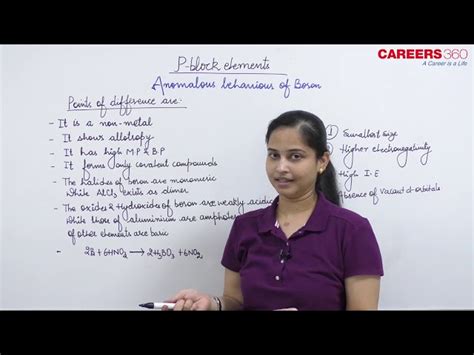 CAREERS360
A Career is a Life
P-block elements
Anomalous behaviour of Boron
Points of difference are:-
- It is a non-metal
- It shows allotropy
- It has high M.P & B.P
- It forms only covalent compounds
- The halides of boron are monomeric
while AlCl3 exists as dimer
- The oxides & Hydroxides of boron are weakly acidic
while those of aluminium are amphoteric
of other elements are basic
- 2B + 6HNO3 → 2H3BO3 + 6NO2
① Smallest size
② Higher electronegativity
High I.E
Absence of vacant d-orbitals